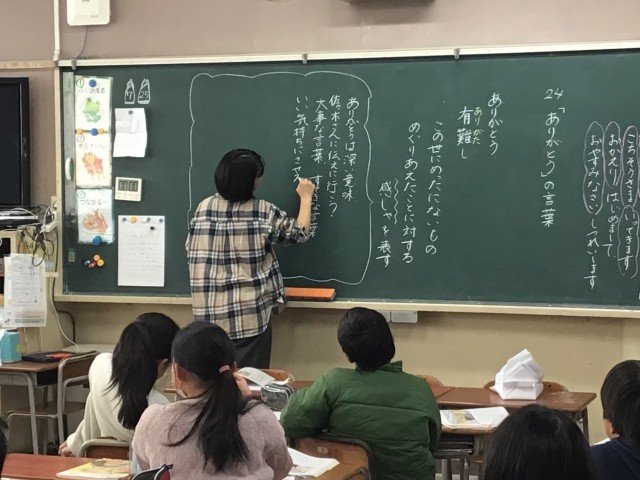 ごちそうさま
おかえり はじめまして
おやすみなさい しつれいします
24「ありがとう」の言葉
ありがとう
ありがた
有難し
この世にめったにないもの
めぐりあえたことに対する
感しゃを表す
ありがとうは深い意味
佐々木さんに伝えに行こう
大事な言葉 言葉
いい気持ちにさせ